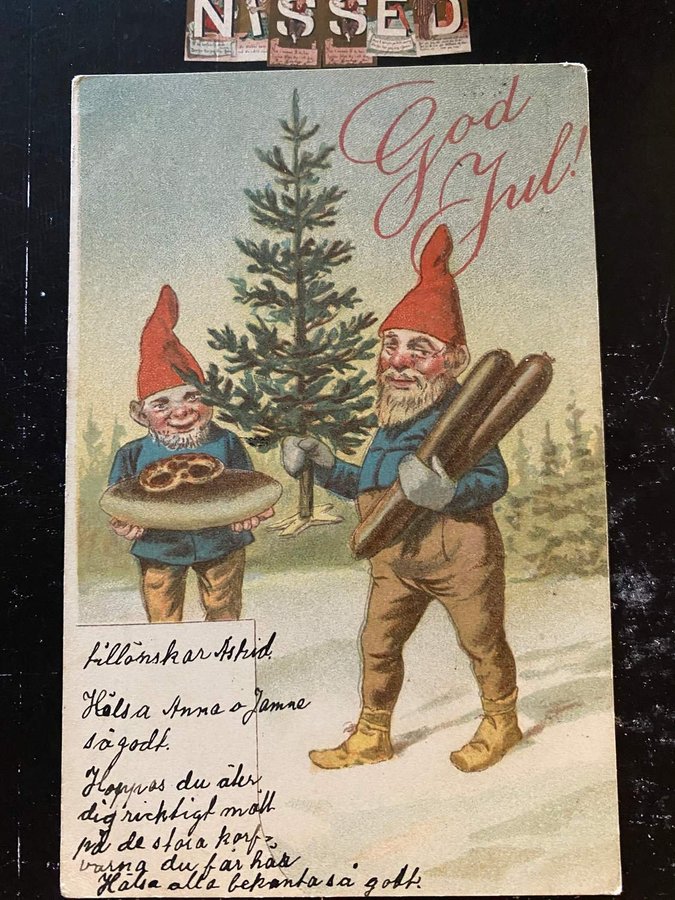 NISSED
God
Jul!
tillönskar Astrid.
Hälsa Anna o Jamne
så godt.
Hoppas du äter
dig richtigt mätt
på de stora korf-
varna du får här
Hälsa alla bekanta så godt.